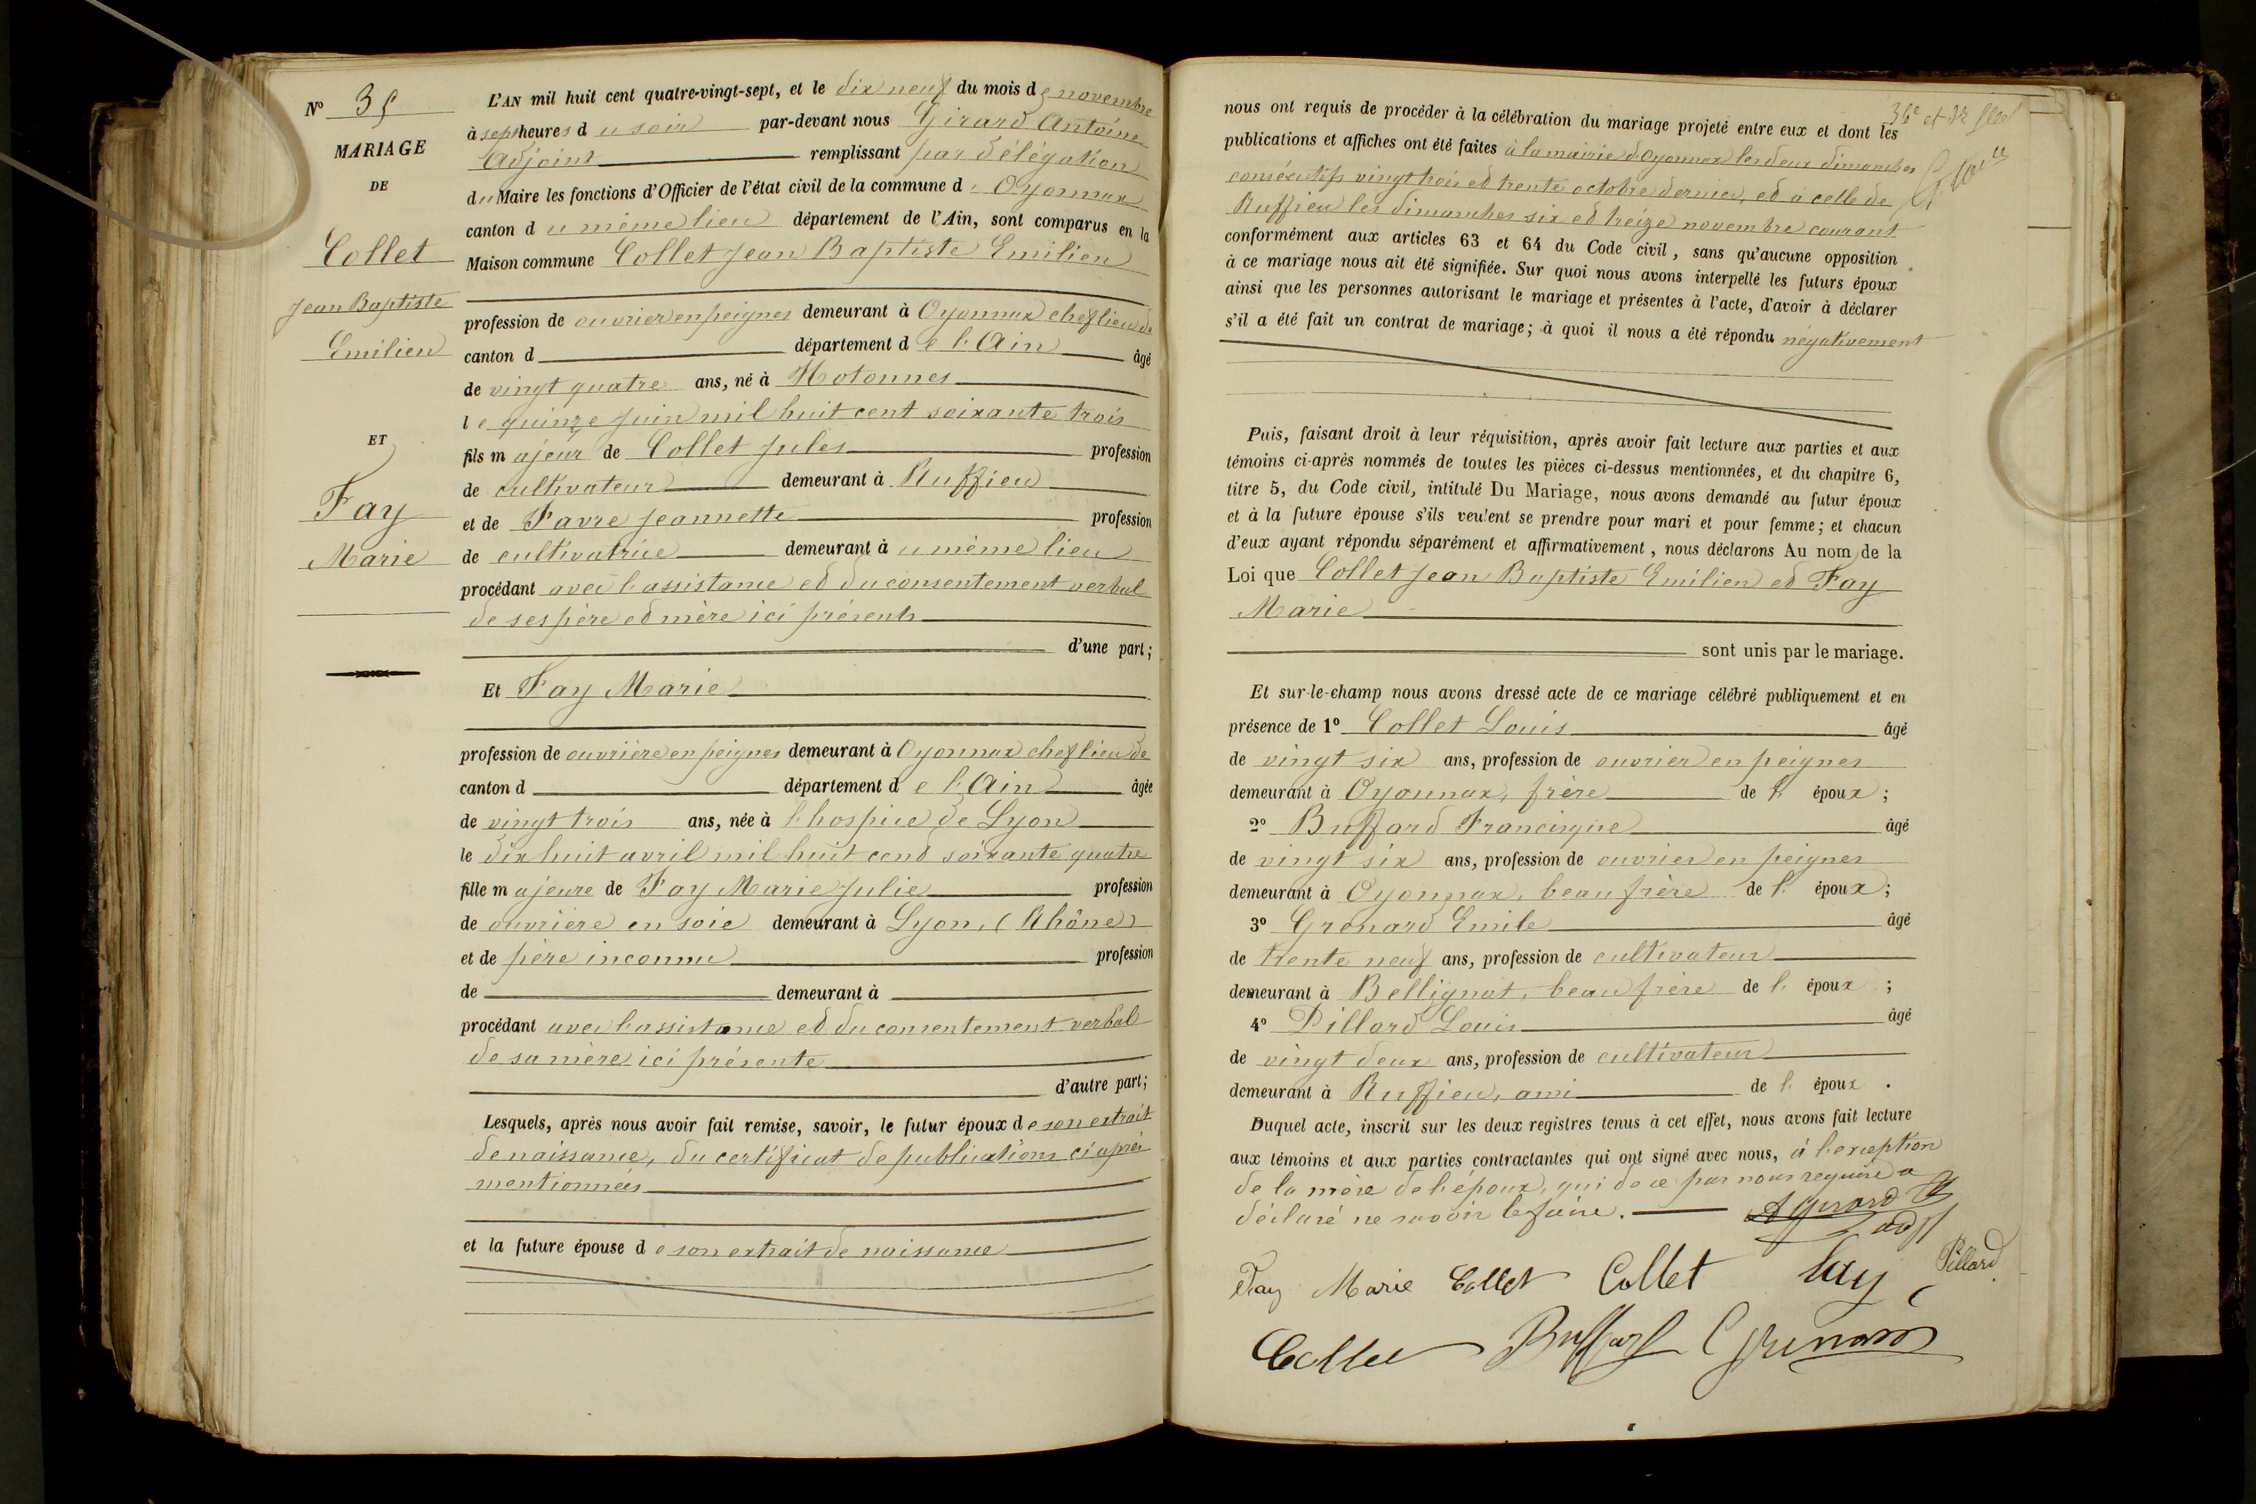 N° 35
MARIAGE
DE
Collet
Jean Baptiste
Emilien
ET
Fay
Marie
L'AN mil huit cent quatre-vingt-sept, et le dix neuf du mois de novembre
à sept heures du soir par-devant nous Girard Antoine
Adjoint remplissant par délégation
du Maire les fonctions d'Officier de l'état civil de la commune d'Oyonnax
canton du même lieu département de l'Ain, sont comparus en la
Maison commune Collet Jean Baptiste Emilien
profession de ouvrier en peignes demeurant à Oyonnax chef lieu de
canton d département de l'Ain âgé
de vingt quatre ans, né à Hotonnes
le quinze juin mil huit cent soixante trois
fils majeur de Collet Jules profession
de cultivateur demeurant à Ruffieu
et de Favre Jeannette profession
de cultivatrice demeurant au même lieu
procédant avec l'assistance et du consentement verbal
de ses père et mère ici présents
d'une part;
Et Fay Marie
profession de ouvrière en peignes demeurant à Oyonnax chef lieu de
canton d département de l'Ain âgée
de vingt trois ans, née à l'hospice de Lyon
le dix huit avril mil huit cent soixante quatre
fille majeure de Fay Marie Julie profession
de ouvrière en soie demeurant à Lyon, (Rhône)
et de père inconnu profession
de demeurant à
procédant avec l'assistance et du consentement verbal
de sa mère ici présente
d'autre part;
Lesquels, après nous avoir fait remise, savoir, le futur époux de son extrait
de naissance, du certificat de publications ci après
mentionnées
et la future épouse de son extrait de naissance
nous ont requis de procéder à la célébration du mariage projeté entre eux et dont les
publications et affiches ont été faites à la mairie d'Oyonnax les deux dimanches
consécutifs vingt trois et trente octobre dernier, et à celle de
Ruffieu les dimanches six et treize novembre courant
conformément aux articles 63 et 64 du Code civil, sans qu'aucune opposition
à ce mariage nous ait été signifiée. Sur quoi nous avons interpellé les futurs époux
ainsi que les personnes autorisant le mariage et présentes à l'acte, d'avoir à déclarer
s'il a été fait un contrat de mariage; à quoi il nous a été répondu négativement
Puis, faisant droit à leur réquisition, après avoir fait lecture aux parties et aux
témoins ci-après nommés de toutes les pièces ci-dessus mentionnées, et du chapitre 6,
titre 5, du Code civil, intitulé Du Mariage, nous avons demandé au futur époux
et à la future épouse s'ils veulent se prendre pour mari et pour femme; et chacun
d'eux ayant répondu séparément et affirmativement, nous déclarons Au nom de la
Loi que Collet Jean Baptiste Emilien et Fay
Marie
sont unis par le mariage.
Et sur-le-champ nous avons dressé acte de ce mariage célébré publiquement et en
présence de 1° Collet Louis âgé
de vingt six ans, profession de ouvrier en peignes
demeurant à Oyonnax, frère de l'époux;
2° Buffard Francisque âgé
de vingt six ans, profession de ouvrier en peignes
demeurant à Oyonnax, beau frère de l'époux;
3° Grenard Emile âgé
de trente neuf ans, profession de cultivateur
demeurant à Bellignat, beau frère de l'époux;
4° Pillard Louis âgé
de vingt deux ans, profession de cultivateur
demeurant à Ruffieu, ami de l'époux.
Duquel acte, inscrit sur les deux registres tenus à cet effet, nous avons fait lecture
aux témoins et aux parties contractantes qui ont signé avec nous, à l'exception
de la mère de l'époux, qui de ce par nous requise a
déclaré ne savoir le faire. A Girard
adjt
Fay Marie Collet Collet Fay Pillard
Collet Buffard Grenard